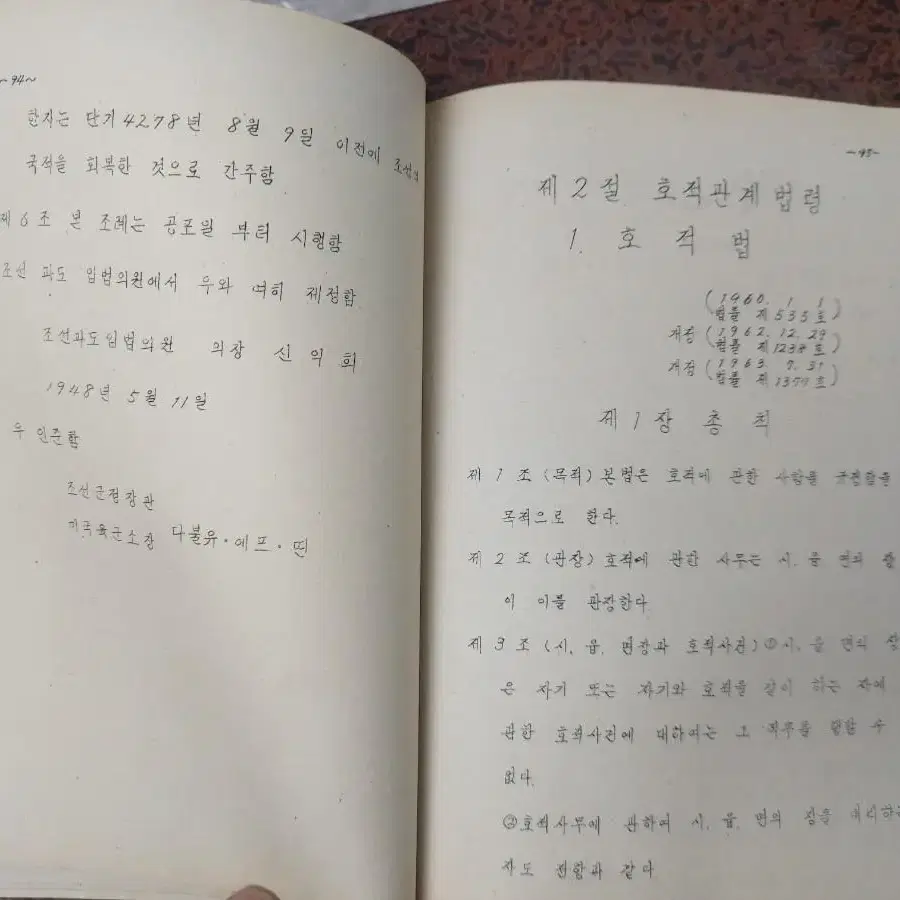 -94-
한자는 단기 4278년 8월 9일 이전에 조선의
국적을 회복한 것으로 간주함
제6조 본 조례는 공포일 부터 시행함
조선 과도 입법의원에서 우와 여히 제정함
조선과도입법의원 의장 신익희
1948년 5월 11일
우 인준함
조선군정장관
미국육군소장 다불유·에프·띤
-95-
제2절 호적관계법령
1. 호적법
(1960. 1. 1
법률 제535호)
개정 (1962. 12. 29
법률 제1238호)
개정 (1963. 7. 31
법률 제1377호)
제1장 총칙
제1조 (목적) 본법은 호적에 관한 사항을 규정함을
목적으로 한다.
제2조 (관장) 호적에 관한 사무는 시, 읍 면의 장
이 이를 관장한다
제3조 (시, 읍, 면장과 호적사건) ①시, 읍 면의 장
은 자기 또는 자기와 호적을 같이 하는 자에
관한 호적사건에 대하여는 그 직무를 행할 수
없다.
②호적사무에 관하여 시, 읍, 면의 장을 대리하는
자도 전항과 같다